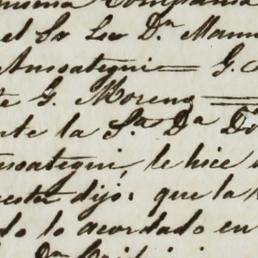 misma Compañia
el Sr Lic Dn Manu
Ansoategui = G.
te G. Moreno =
nte la Sra Da Do
nsoategui, le hice
esta dijo: que la h
do lo acordado en
Dn